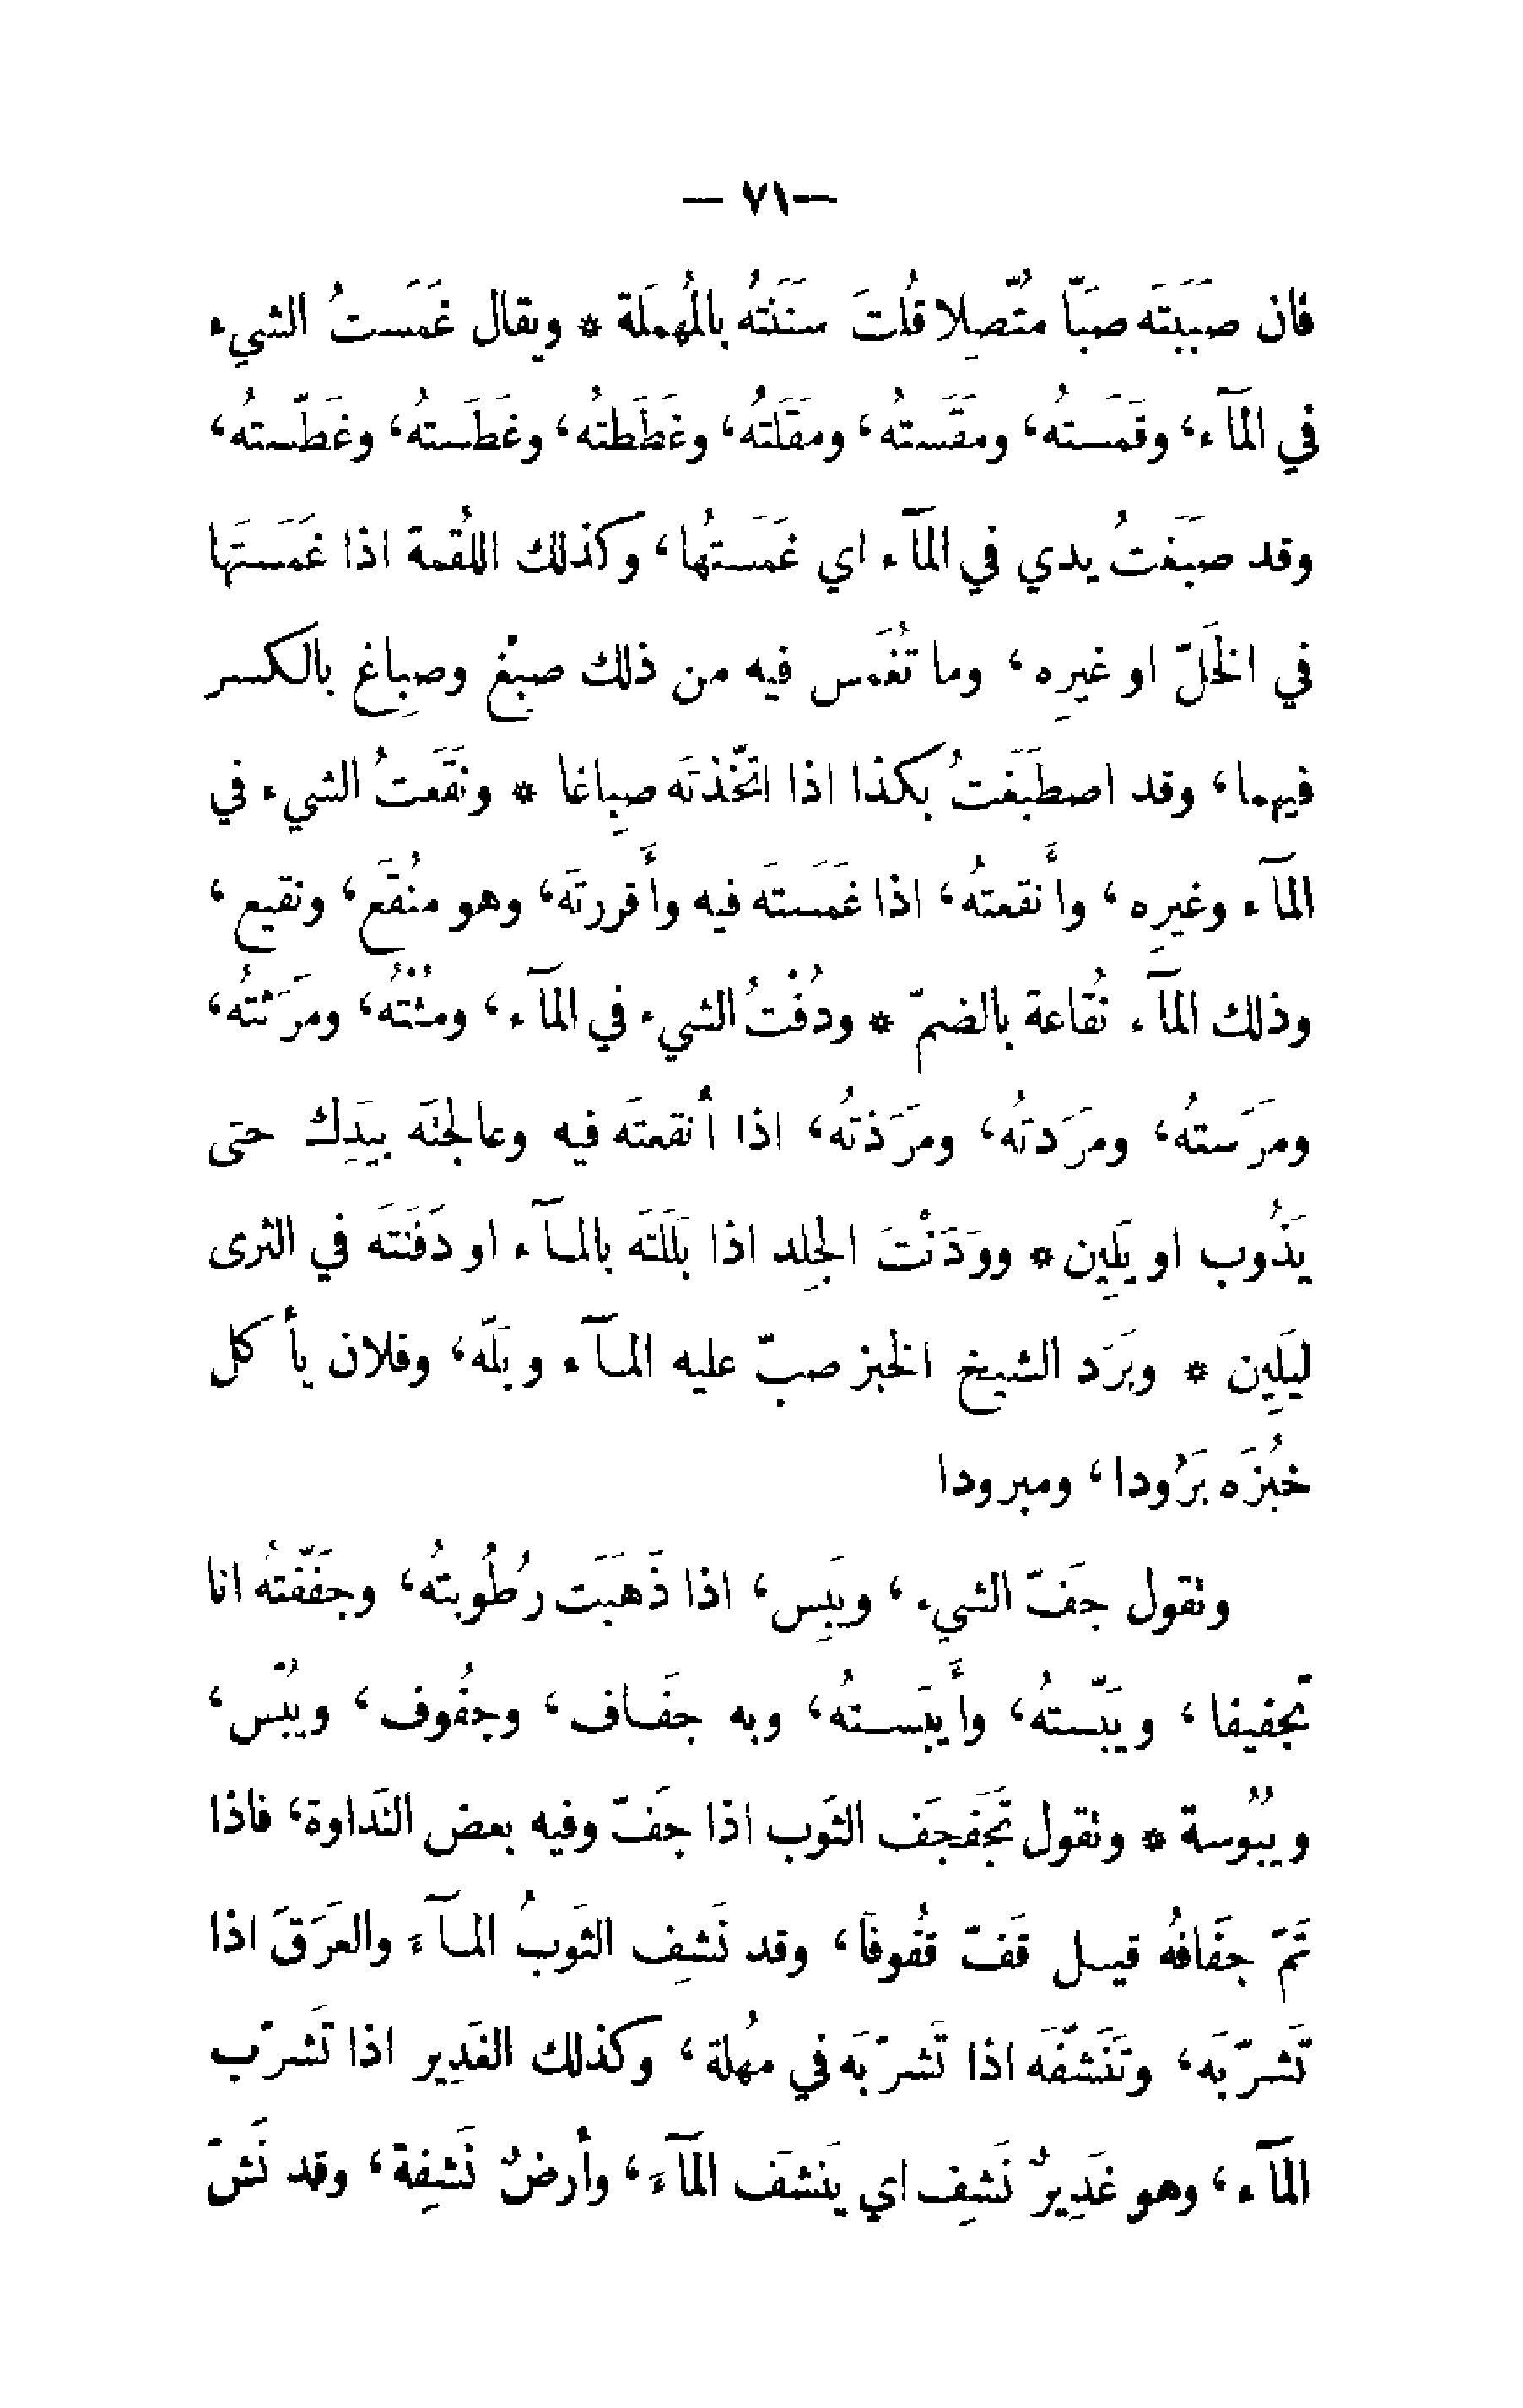 — ٧١ —
فان صَبَبتَه صَبّا مُتَّصِلا قُلتَ سَنَنتُهُ بالمُهمَلَة * ويقال غَمَستُ الشيء
في المآء، وقَمَستُه، ومَقَستُه، ومَقَلتُه، وغَطَطتُه، وغَطَستُه، وغَطَّستُه،
وقد صَبَغتُ يدي في المآء اي غَمَستُها، وكذلك اللُقمة اذا غَمَستَها
في الخَلّ او غيرِه، وما تُغمَس فيه من ذلك صِبْغ وصِباغ بالكسر
فيهما، وقد اصطَبَغتُ بكذا اذا اتَّخَذتَه صِباغا * ونَقَعتُ الشيء في
المآء وغيرِه، وأَنقعتُه، اذا غَمَستَه فيه وأَقررتَه، وهو مُنقَع، ونقيع،
وذلك المآء نُقاعة بالضمّ * ودُفْتُ الشيء في المآء، ومُثْتُه، ومَرَثتُه،
ومَرَستُه، ومَرَدتُه، ومَرَذتُه، اذا أنقعتَه فيه وعالجتَه بيَدِك حتى
يَذُوب او يَلِين * ووَدَنْتَ الجِلد اذا بَلَلتَه بالمآء او دَفَنتَه في الثرى
ليَلِين * وبَرَد الشيخ الخبز صبّ عليه المآء وبَلّه، وفلان يأكل
خُبزَه بَرُودا، ومبرودا
ونقول جَفّ الشيء، ويَبِس، اذا ذَهَبَت رُطُوبتُه، وجَفَّفتُه انا
تجفيفا، ويَبّستُه، وأَيبَستُه، وبه جَفاف، وجُفُوف، ويُبْس،
ويُبُوسة * ونقول تَجَفجَف الثَوب اذا جَفّ وفيه بعض النَداوة، فاذا
تَمّ جَفَافُه قيل قَفّ قُفُوفًا، وقد نَشِف الثَوبُ المآءَ والعَرَقَ اذا
تَشرّبَه، وتَنَشَّفَه اذا تَشرّبَه في مُهلة، وكذلك الغَدِير اذا تَشرّب
المآء، وهو غَدِيرٌ نَشِف اي يَنشَف المآءَ، وأرضٌ نَشِفة، وقد نَشّ